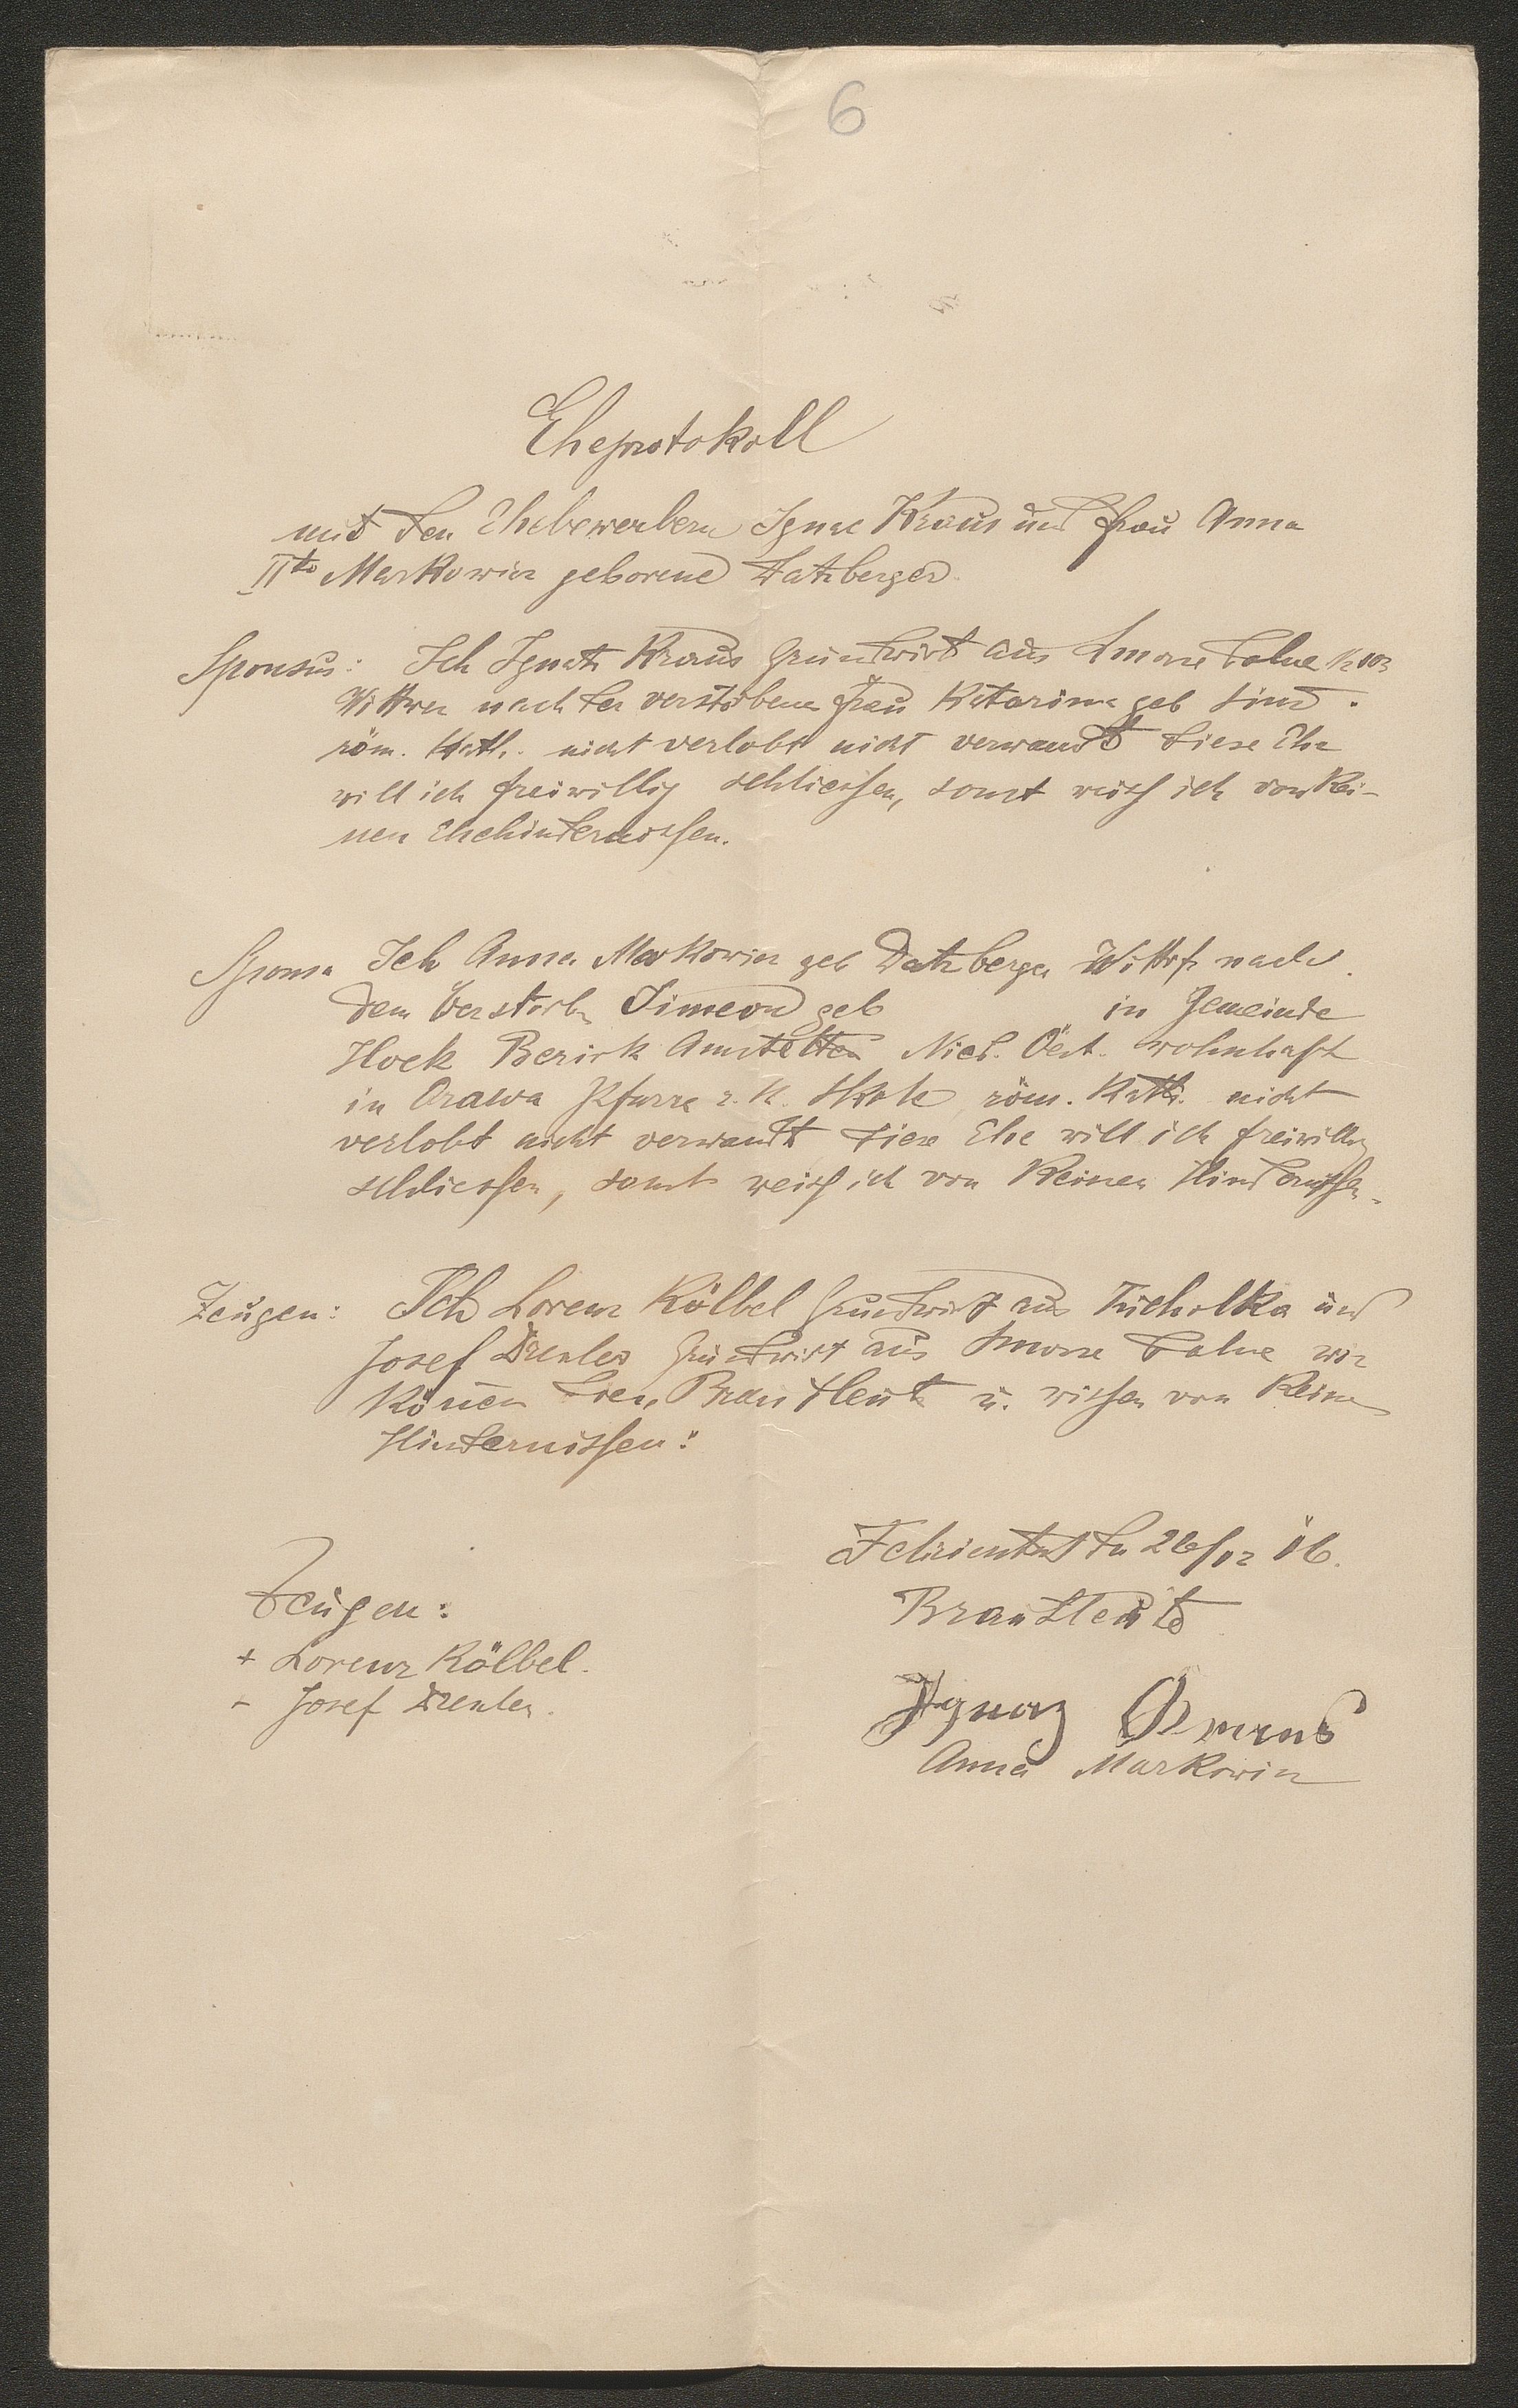 6
Eheprotokoll
mit den Ehebewerbern Ignac Kraus und Frau Anna
IIto Markowicz geborene Datzberger
Sponsus: Ich Ignatz Kraus Grundwirt aus Smorze dolne
Wittwer nach der verstorbenen Frau Katarina geb Sind.
röm. Kath. nicht verlobt nicht verwandt diese Ehe
will ich freiwillig schliessen, somit weiss ich von kei-
nen Ehehindernissen.
Sponsa Ich Anna Markowicz geb Datzberger nach
dem verstorb. Simeon geb in Gemeinde
Hoek Bezirk Amstetten Nied. Öst. wohnhaft
in Orawa Pfarre r. k. Skole röm. Kath. nicht
verlobt nicht verwandt diese Ehe will ich freiwillig
schliessen, somit weiss ich von keinen Hindernissen.
Zeugen: Ich Lorenz Kölbel Grundwirt aus Tucholka und
Josef Drexler Grundwirt aus Smorze dolne wir
können Brautleute u. wissen von keinen
Hindernissen:
Felizienthal den 26/02 16.
Brautleute
Zeugen:
+ Lorenz Kölbel.
- Josef Drexler.
Ignaz Kraus
Anna Markowicz